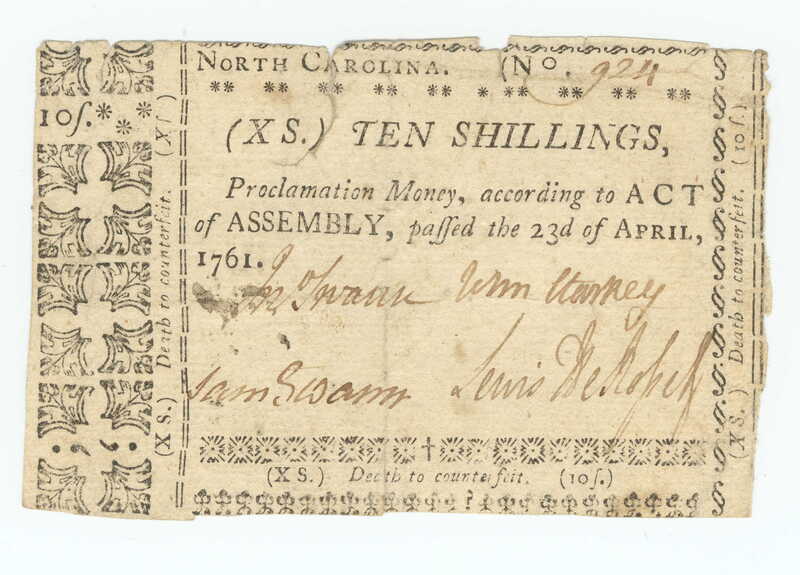 North Carolina. (No. 924
** ** ** ** ** * *** ** ** **
(X S.) TEN SHILLINGS,
Proclamation Money, according to ACT
of ASSEMBLY, paſſed the 23d of April,
1761.
Jno Swann Wm Starkey
Sam Swann Lewis DeRosset
(X S.) Death to counterfeit. (10ſ.)
10ſ. * * *
(X S.) Death to counterfeit. (X ſ.)
(X S.) Death to counterfeit. (10ſ.)